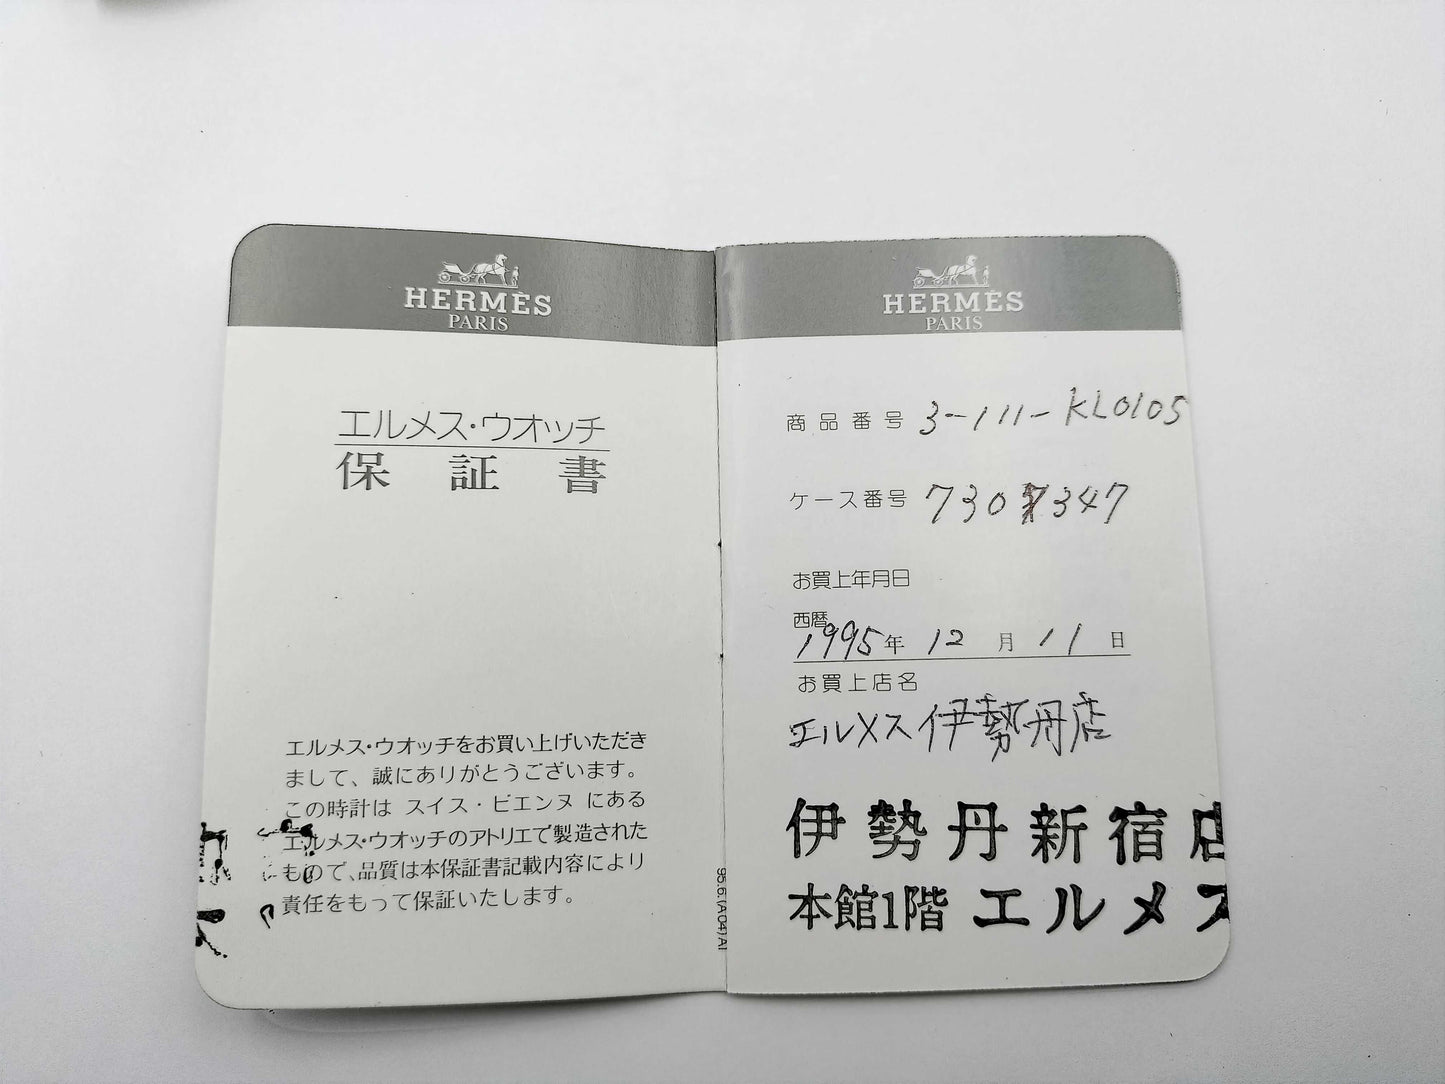 HERMÈS
PARIS
エルメス・ウオッチ
保証書
エルメス・ウオッチをお買い上げいただき
まして、誠にありがとうございます。
この時計は スイス・ビエンヌ にある
エルメス・ウオッチのアトリエで製造された
もので、品質は本保証書記載内容により
責任をもって保証いたします。
95.6.(A04)A1
HERMÈS
PARIS
商品番号 3-111-KL0105
ケース番号 730 347
お買上年月日
西暦
1995年 12月 11日
お買上店名
エルメス伊勢丹店
伊勢丹新宿店
本館1階 エルメス